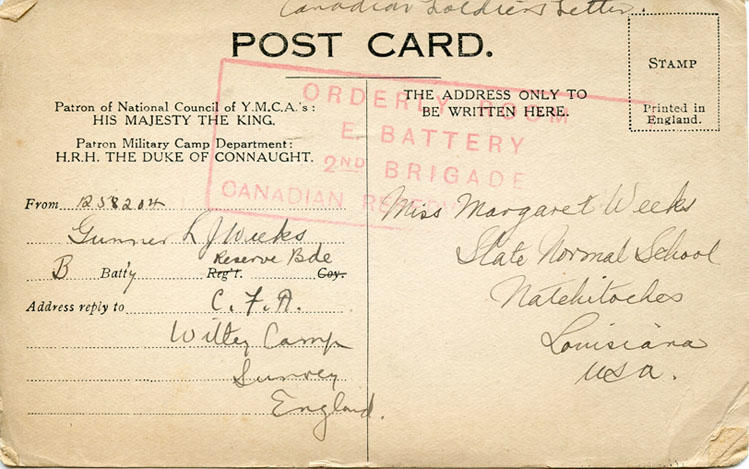 Canadian Soldiers Letter.
POST CARD.
STAMP
Printed in
England.
Patron of National Council of Y.M.C.A.'s:
HIS MAJESTY THE KING.
Patron Military Camp Department:
H.R.H. THE DUKE OF CONNAUGHT.
THE ADDRESS ONLY TO
BE WRITTEN HERE.
ORDERLY ROOM
E. BATTERY
2ND BRIGADE
CANADIAN
From 1258204
Gunner L J Weeks
Reserve Bde
B Batt'y Reg't. Coy.
Address reply to C. F. A.
Witley Camp
Surrey
England.
Miss Margaret Weeks
State Normal School
Natchitoches
Louisiana
USA.